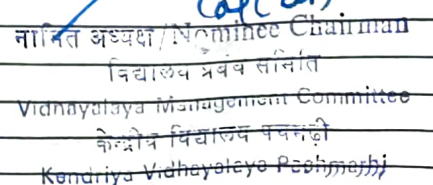 नामित अध्यक्ष/Nominee Chairman
विद्यालय प्रबंध समिति
Vidhayalaya Management Committee
केन्द्रीय विद्यालय पचमढ़ी
Kendriya Vidhayalaya Pachmarhi